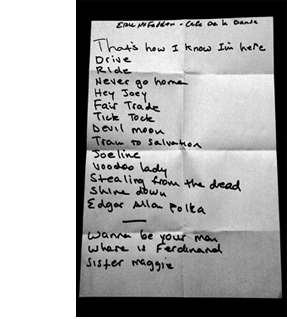 Eric McFadden - Cafe De la Danse
That's how I know I'm here
Drive
Ride
Never go home
Hey Joey
Fair Trade
Tick Tock
Devil moon
Train to Salvation
Joeline
Voodoo lady
Stealing from the dead
Shine down
Edgar Allan Polka
Wanna be your man
Where is Ferdinand
Sister Maggie